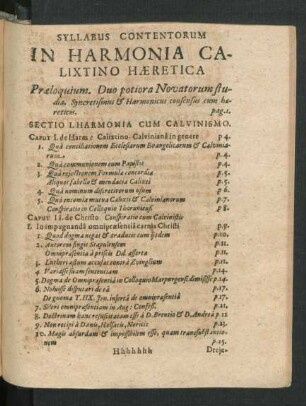 SYLLABUS CONTENTORUM
IN HARMONIA CA-
LIXTINO HÆRETICA
Præloquium. Duo potiora Novatorum stu-
dia, Syncretismus & Harmonicus consensus cum hæ-
reticis. pag.1.
SECTIO I. HARMONIA CUM CALVINISMO.
CAPUT I. de Harm: Calixtino-Calviniana in genere p.4.
1. Quâ conciliationem Ecclesiarum Evangelicarum & Calvinia-
narum. p.4.
2. Quâ communionem cum Papistis p.4.
3. Quâ rejectionem Formula concordia p.5.
Aliquot fabella & mendacia Calixti p.5.
4. Quâ nominum discretivorum usum p.6.
5. Quâ encomia mutua Calixti & Calvinianorum p.7.
Conspiratio in Colloquio Thoruniensi p.8.
CAPUT II. de Christo. Conspiratio cum Calvinistis
I. In impugnandâ omnipræsentiâ carnis Christi p.9.
1. Quod dogma negat & traducit cum iisdem p.10.
2. Autorem fingit Stapulensem p.11.
Omnipræsentia à priscis Dd. asserta p.11.
3. Lutheri usum accusat contra Zvinglium p.12.
4. Pari asse ipsam sententiam p.14.
5. Dogma de Omnipræsentiâ in Colloquio Marpurgensi dimissum p.14.
6. Noluisse disputari de eâ p.17.
De gnoma T. IIX. Jen. insertâ de omnipræsentiâ p.17.
7. Sileri omnipræsentiam in Aug: Confess. p.21.
8. Doctrinam hanc resuscitatam esse à D. Brentio & D. Andreæ p.22
9. Non recipi à Danis, Holsatis, Noricis p.23.
10. Magis absurdam & impossibilem esse, quam transubstantio-
nem p.25.
Hhhhhhh Dreje-